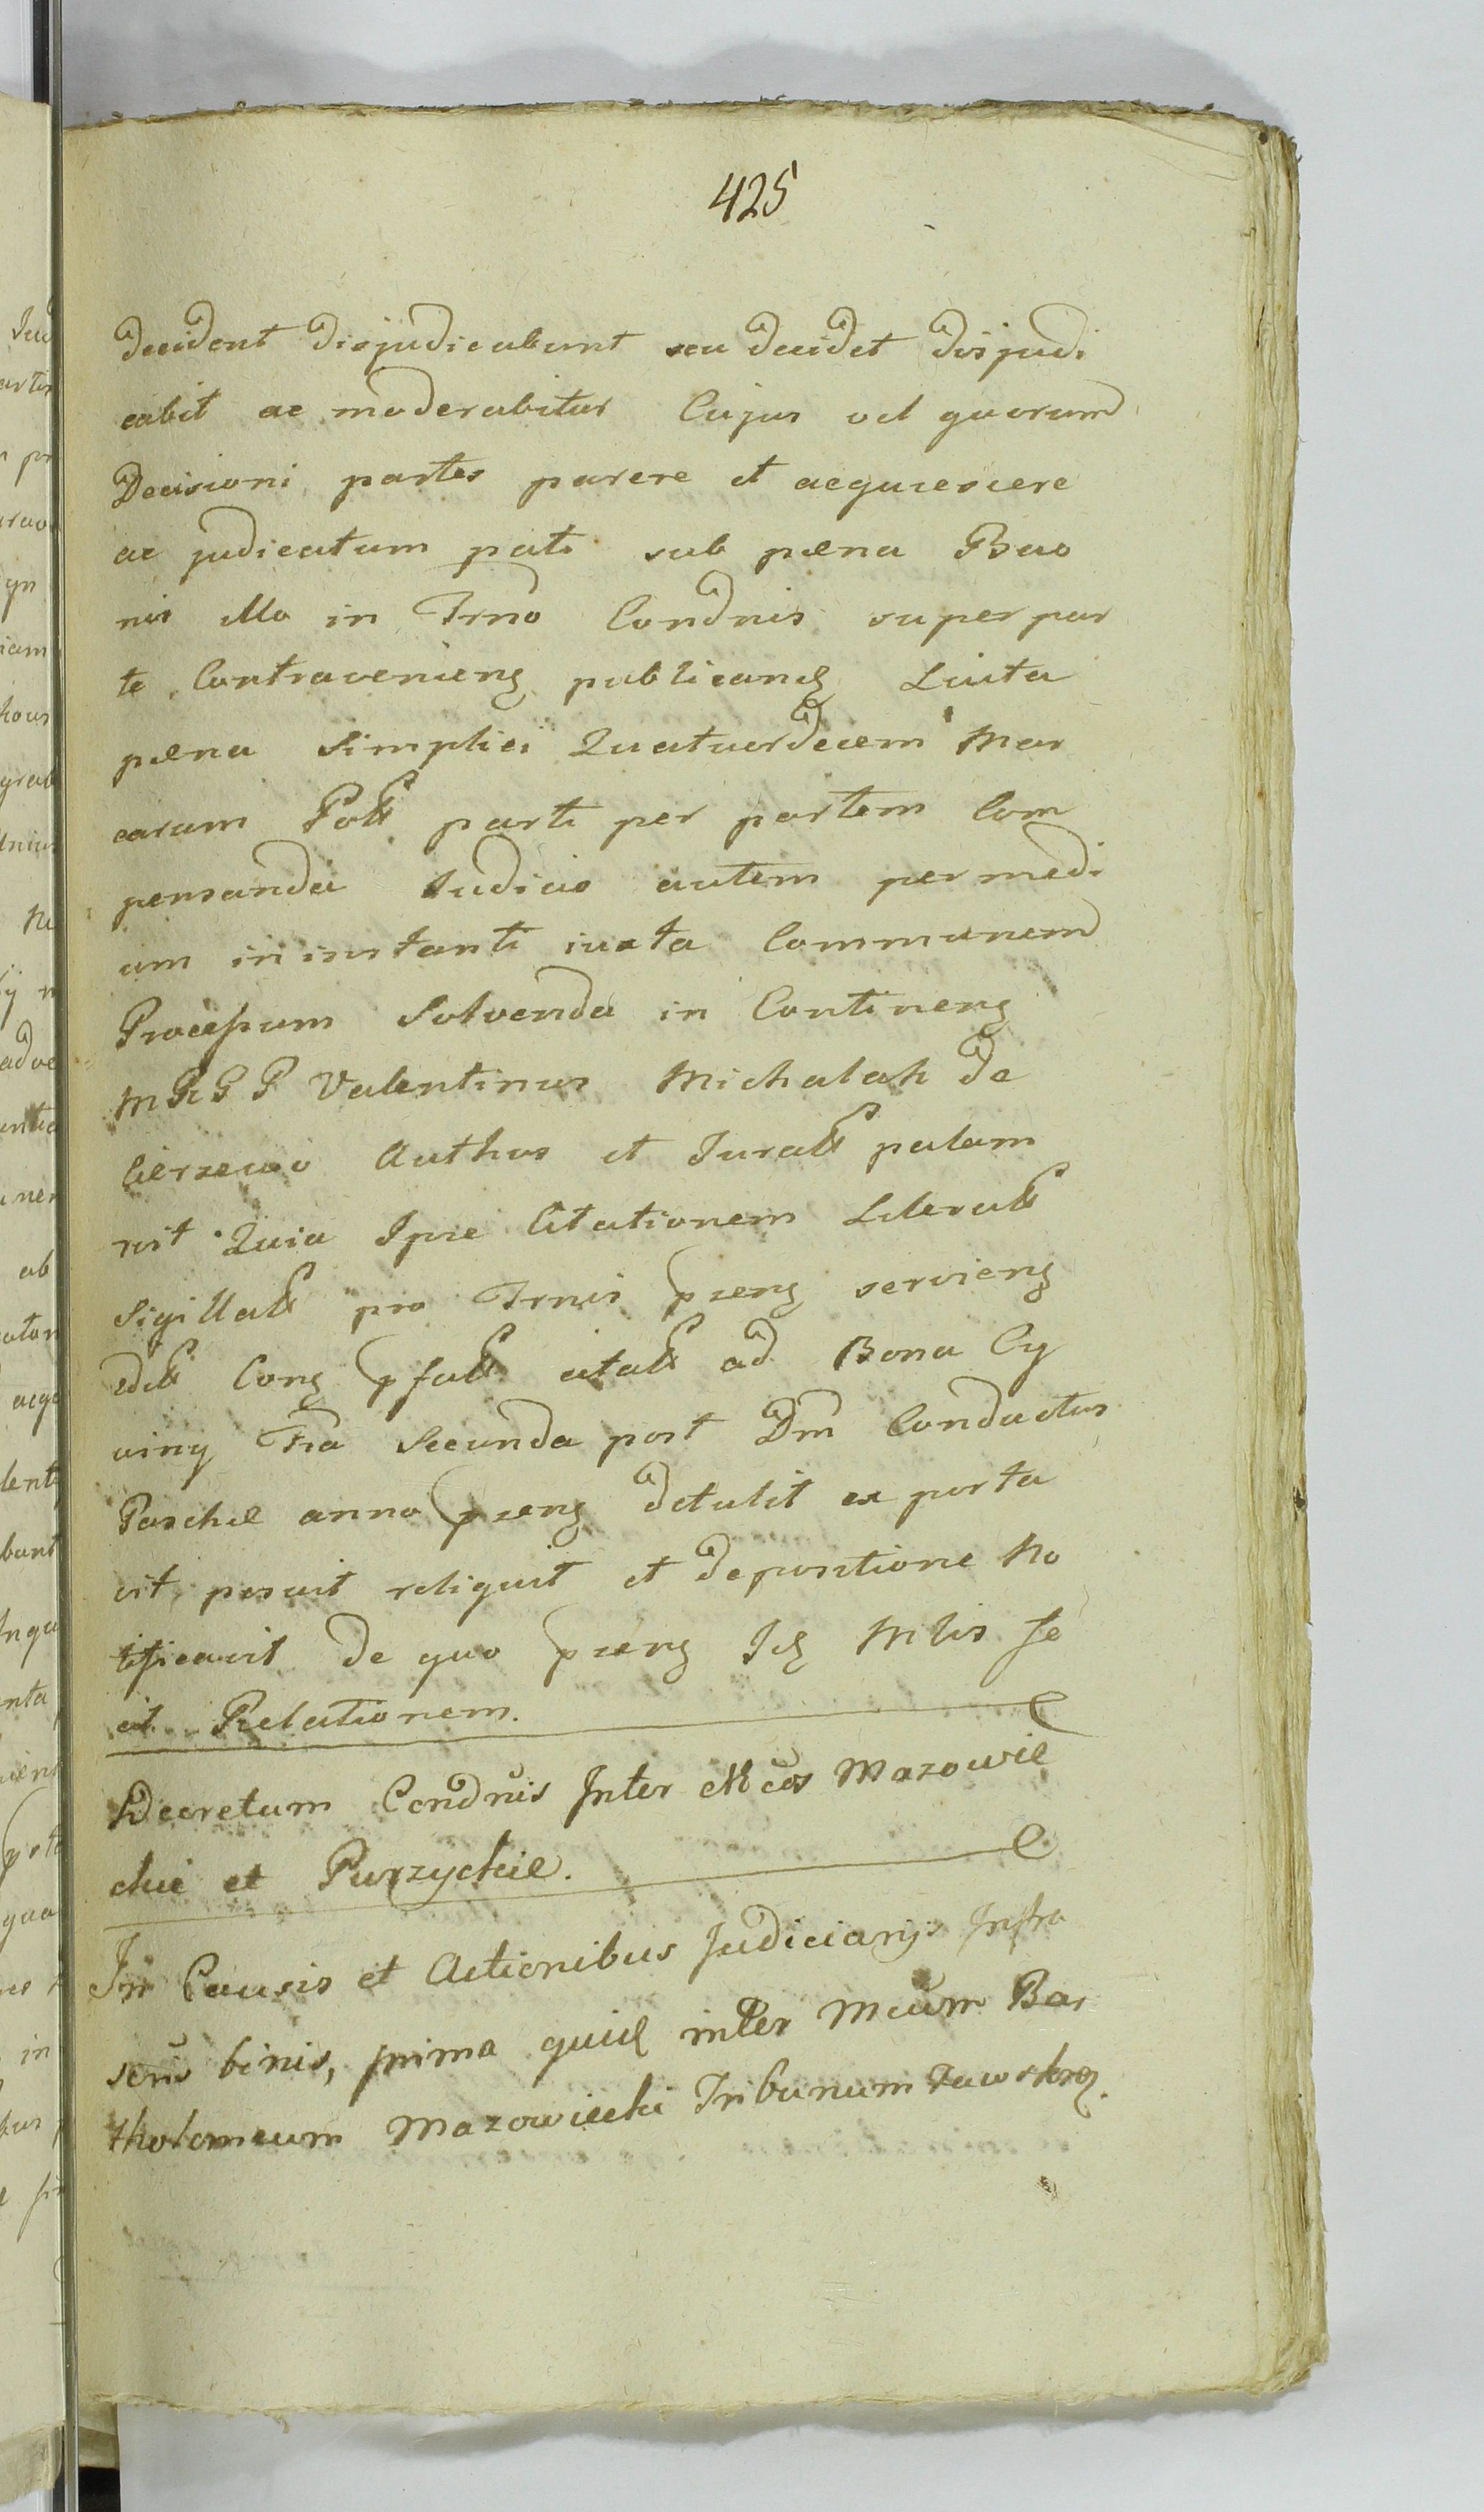 425
decident disjudicabunt seu decidet disjudi
cabit ac moderabitur Cujus vel quorum
Decisioni partes parere et acquiescere
ac judicatum pati sub pæna Ban
nis illo in Trno Condnis super par
te Contravenieng publicand Luita
pæna Simplici Quatuordecem Mar
carum parti per partem Com
pensanda Judicio autem per medi
um in instanti iuxta Communem
Processum Solvenda in Contineng
Valentinus Michalak de
Cierzewo Author et palam
rit Quia Ipse Citationem
pro Trnis serwieng
ad Bona Cy
winy Fra Secunda post Dm Conductus
Paschæ anno pzeng detulit ex porta
vit posuit reliquit et depositione No
tificavit de quo pzeng Mlis fe
cit Relationem.
Decretum Condnis Inter Mcos Mazowie
ckie et Purzyckie.
In Causis et Actionibus Judiciarijs Infra
scris binis, prima quid inter Mcum Bar
tholomeum Mazowiecki Tribunum